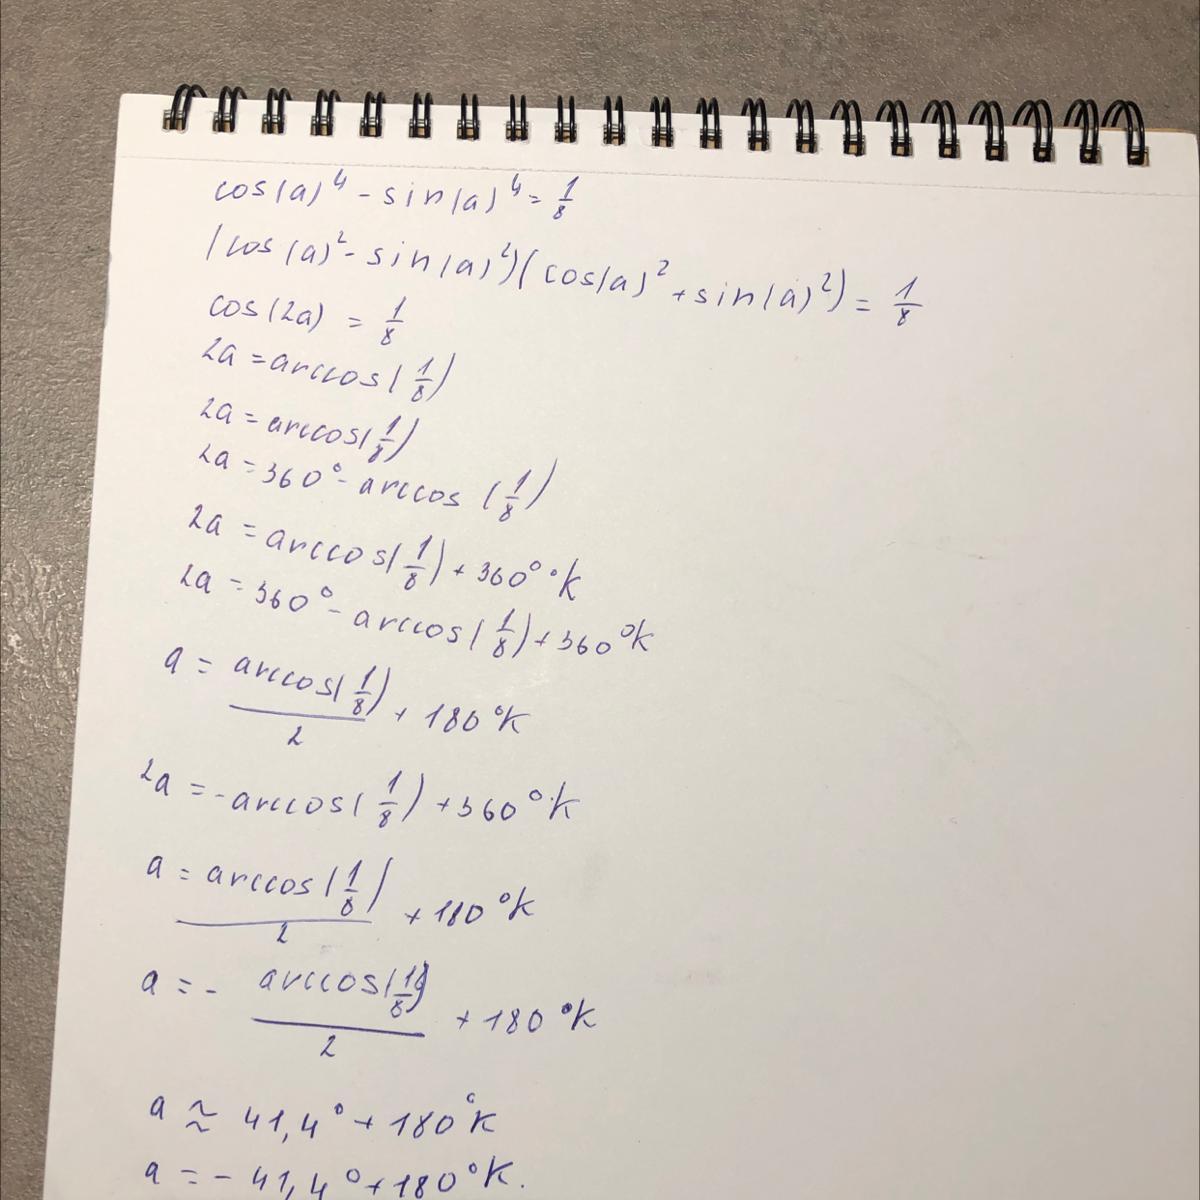 cos(a)⁴ - sin(a)⁴ = 1/8
(cos(a)² - sin(a)²)(cos(a)² + sin(a)²) = 1/8
cos(2a) = 1/8
2a = arccos(1/8)
2a = arccos(1/8)
2a = 360° - arccos(1/8)
2a = arccos(1/8) + 360°·k
2a = 360° - arccos(1/8) + 360°k
a = arccos(1/8)/2 + 180°k
2a = -arccos(1/8) + 360°·k
a = arccos(1/8)/2 + 180°k
a = - arccos(1/8)/2 + 180°k
a ≈ 41,4° + 180°k
a = - 41,4° + 180°k.